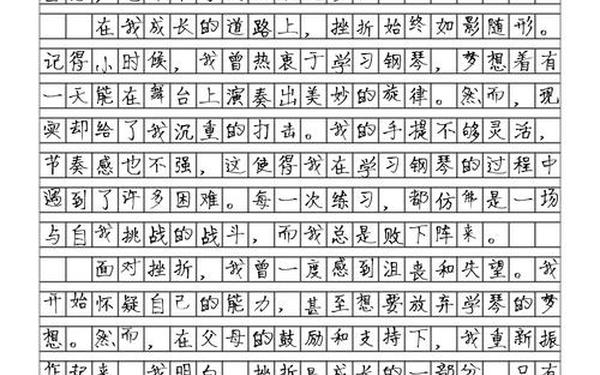 在我成长的道路上，挫折始终如影随形。
记得小时候，我曾热衷于学习钢琴，梦想着有
一天能在舞台上演奏出美妙的旋律。然而，现
实却给了我沉重的打击。我的手提不够灵活，
节奏感也不强，这使得我在学习钢琴的过程中
遇到了许多困难。每一次练习，都仿佛是一场
与自我挑战的战斗，而我总是败下阵来。
面对挫折，我曾一度感到沮丧和失望。我
开始怀疑自己的能力，甚至想要放弃学琴的梦
想。然而，在父母的鼓励和支持下，我重新振
作起来。我明白，挫折是成长的一部分，只有